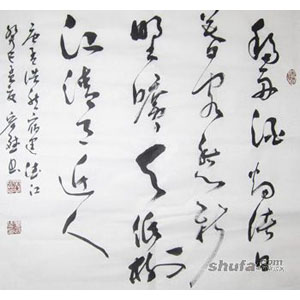 移舟泊烟渚日
暮客愁新
野曠天低樹
江清月近人
唐孟浩然宿建德江
癸巳
shufa.com